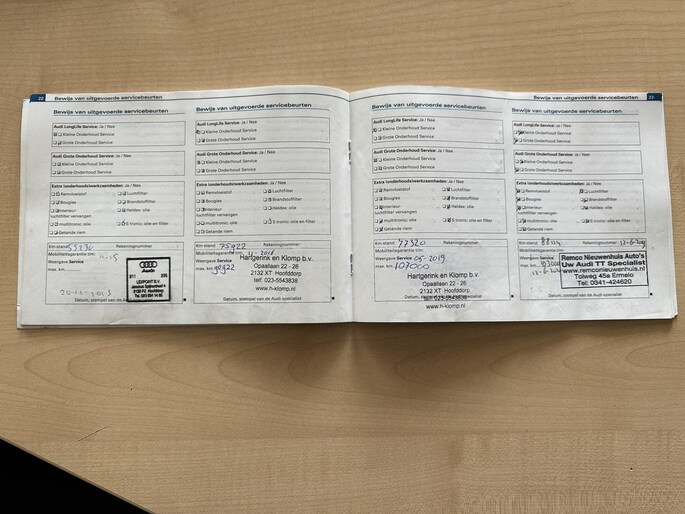 22 Bewijs van uitgevoerde servicebeurten
Bewijs van uitgevoerde servicebeurten
Audi LongLife Service: Ja / Nee
Kleine Onderhoud Service
Grote Onderhoud Service
Audi Grote Onderhoud Service: Ja / Nee
Kleine Onderhoud Service
Grote Onderhoud Service
Extra (onderhouds)werkzaamheden: Ja / Nee
Remvloeistof Luchtfilter
Bougies Brandstoffilter
Interieur Haldex olie
luchtfilter vervangen
multitronic olie S tronic olie en filter
Getande riem
Km-stand: Rekeningnummer:
Mobiliteitsgarantie t/m:
Weergave Service
max. km
Audi
LEIPOINT B.V.
Datum, stempel van de Audi specialist
Bewijs van uitgevoerde servicebeurten
Audi LongLife Service: Ja / Nee
Kleine Onderhoud Service
Grote Onderhoud Service
Audi Grote Onderhoud Service: Ja / Nee
Kleine Onderhoud Service
Grote Onderhoud Service
Extra (onderhouds)werkzaamheden: Ja / Nee
Remvloeistof Luchtfilter
Bougies Brandstoffilter
Interieur Haldex olie
luchtfilter vervangen
multitronic olie S tronic olie en filter
Getande riem
Km-stand: 75922 Rekeningnummer:
Mobiliteitsgarantie t/m:
Weergave Service
max. km
Hartgerink en Klomp b.v.
Opaallaan 22 - 26
2132 XT Hoofddorp
telf. 023-5543838
Datum, stempel van de Audi specialist
www.h-klomp.nl
Bewijs van uitgevoerde servicebeurten 23
Bewijs van uitgevoerde servicebeurten
Audi LongLife Service: Ja / Nee
Kleine Onderhoud Service
Grote Onderhoud Service
Audi Grote Onderhoud Service: Ja / Nee
Kleine Onderhoud Service
Grote Onderhoud Service
Extra (onderhouds)werkzaamheden: Ja / Nee
Remvloeistof Luchtfilter
Bougies Brandstoffilter
Interieur Haldex olie
luchtfilter vervangen
multitronic olie S tronic olie en filter
Getande riem
Km-stand: 77320 Rekeningnummer:
Mobiliteitsgarantie t/m:
Weergave Service 05-2019
max. km 107000
Hartgerink en Klomp b.v.
Opaallaan 22 - 26
2132 XT Hoofddorp
telf. 023-5543838
Datum, stempel van de Audi specialist
www.h-klomp.nl
Bewijs van uitgevoerde servicebeurten
Audi LongLife Service: Ja / Nee
Kleine Onderhoud Service
Grote Onderhoud Service
Audi Grote Onderhoud Service: Ja / Nee
Kleine Onderhoud Service
Grote Onderhoud Service
Extra (onderhouds)werkzaamheden: Ja / Nee
Remvloeistof Luchtfilter
Bougies Brandstoffilter
Interieur Haldex olie
luchtfilter vervangen
multitronic olie S tronic olie en filter
Getande riem
Km-stand: Rekeningnummer:
Mobiliteitsgarantie t/m:
Weergave Service
max. km
Remco Nieuwenhuis Auto's
Uw Audi TT Specialist
www.remconieuwenhuis.nl
Tolweg 45a Ermelo
Tel: 0341-424620
Datum, stempel van de Audi specialist